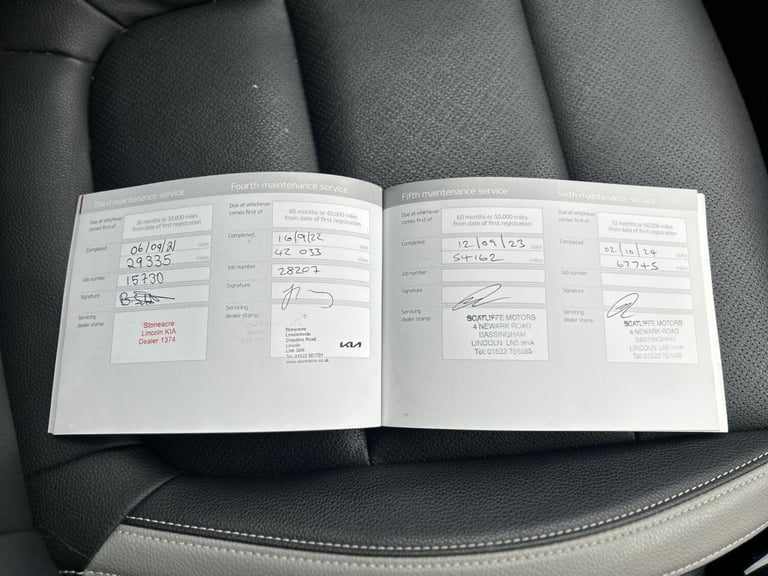 Third maintenance service
Due at whichever comes first of
36 months or 30,000 miles
from date of first registration
Completed
06/09/21 date
29335 miles
Job number
15730
Signature
Servicing
dealer stamp
Stoneacre
Lincoln KIA
Dealer 1374
Fourth maintenance service
Due at whichever
comes first of
48 months or 40,000 miles
from date of first registration
Completed
16/9/22 date
42 033 miles
Job number
28207
Signature
Servicing
dealer stamp
Stoneacre
Lincolnfields
Lincoln
LN6 3SR
Tel: 01522
www.stoneacre.co.uk
KIA
Fifth maintenance service
Due at whichever
comes first of
60 months or 50,000 miles
from date of first registration
Completed
12/09/23 date
54162 miles
Job number
Signature
Servicing
dealer stamp
SCATLIFFE MOTORS
4 NEWARK ROAD
BASSINGHAM
LINCOLN LN5 9HA
Tel: 01522 788585
Sixth maintenance service
Due at whichever
comes first of
72 months or 60,000 miles
from date of first registration
Completed
02/10/24 date
67745 miles
Job number
Signature
Servicing
dealer stamp
SCATLIFFE MOTORS
4 NEWARK ROAD
BASSINGHAM
LINCOLN LN5 9HA
Tel: 01522 788585